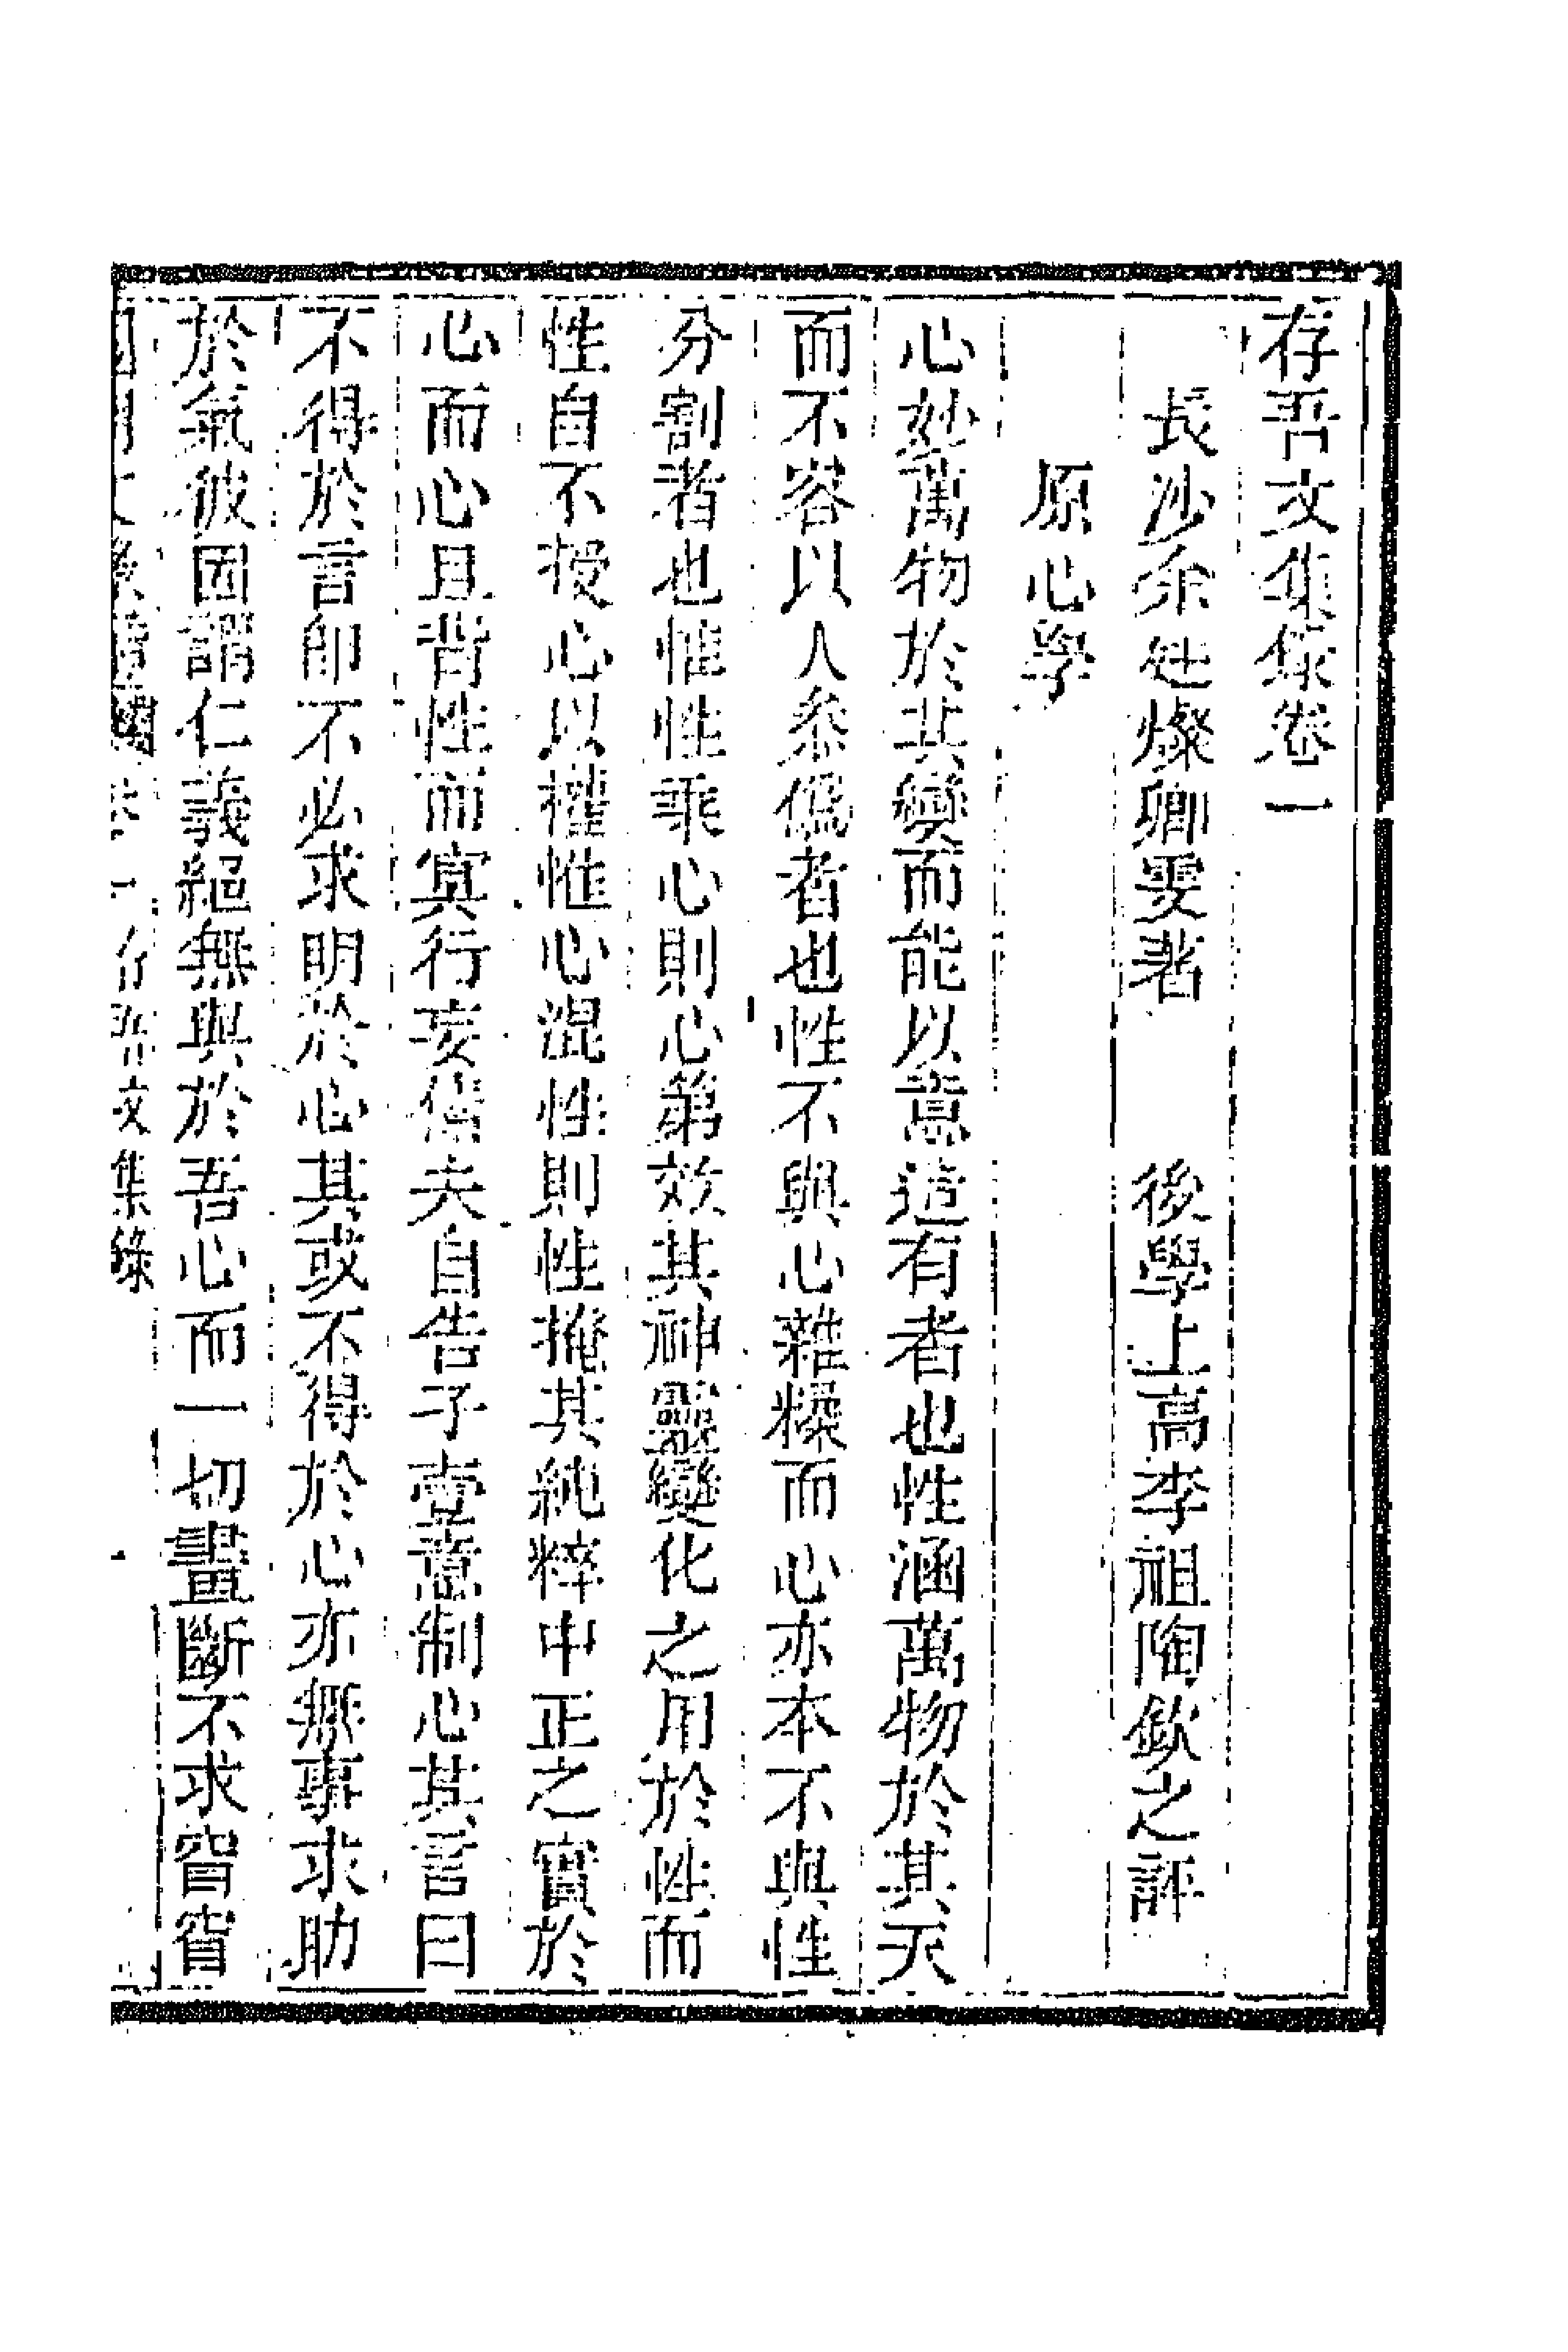 存吾文集錄卷一
長沙余廷燦卿雯著　後學上高李祖陶欽之評
原心學
心妙萬物於其變而能以意造有者也性涵萬物於其天
而不容以人叅僞者也性不與心雜糅而心亦本不與性
分割者也惟性乘心則心第效其神靈變化之用於性而
性自不授心以權惟心混性則性掩其純粹中正之實於
心而心且背性而冥行妄作夫自告子壹意制心其言曰
不得於言卽不必求明於心其或不得於心亦無事求助
於氣彼固謂仁義緼無與於吾心而一切畫斷不求窅窅
國朝文錄續編 卷一 存吾文集錄